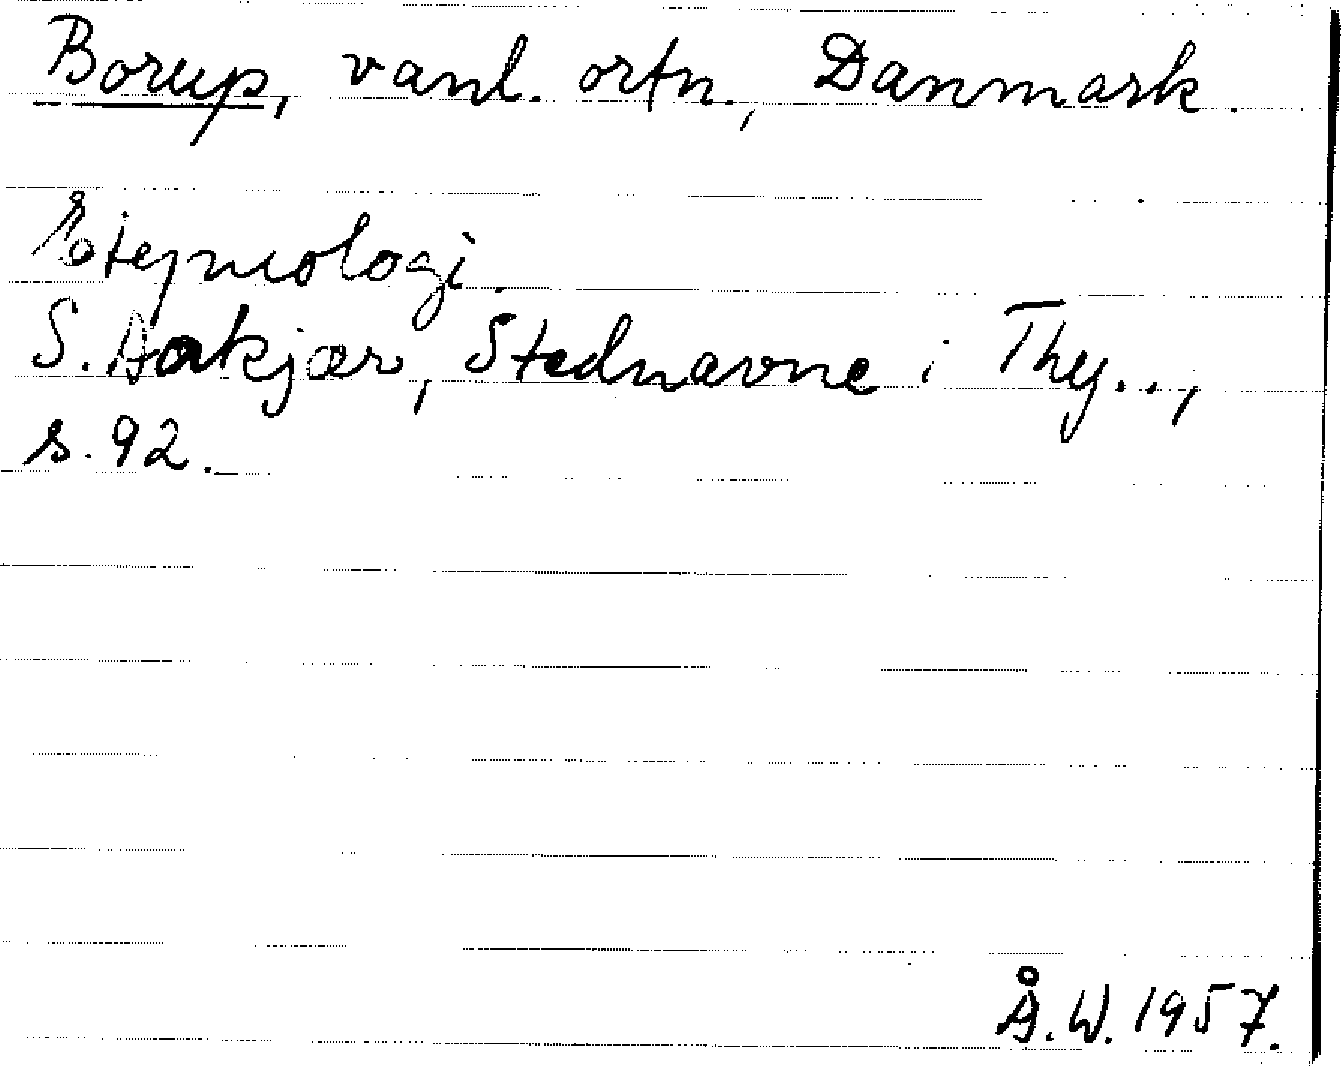 Borup, vanl. ortn., Danmark.
Etymologi.
S. Aakjær, Stednavne i Thy..,
s. 92.
Å.W. 1957.